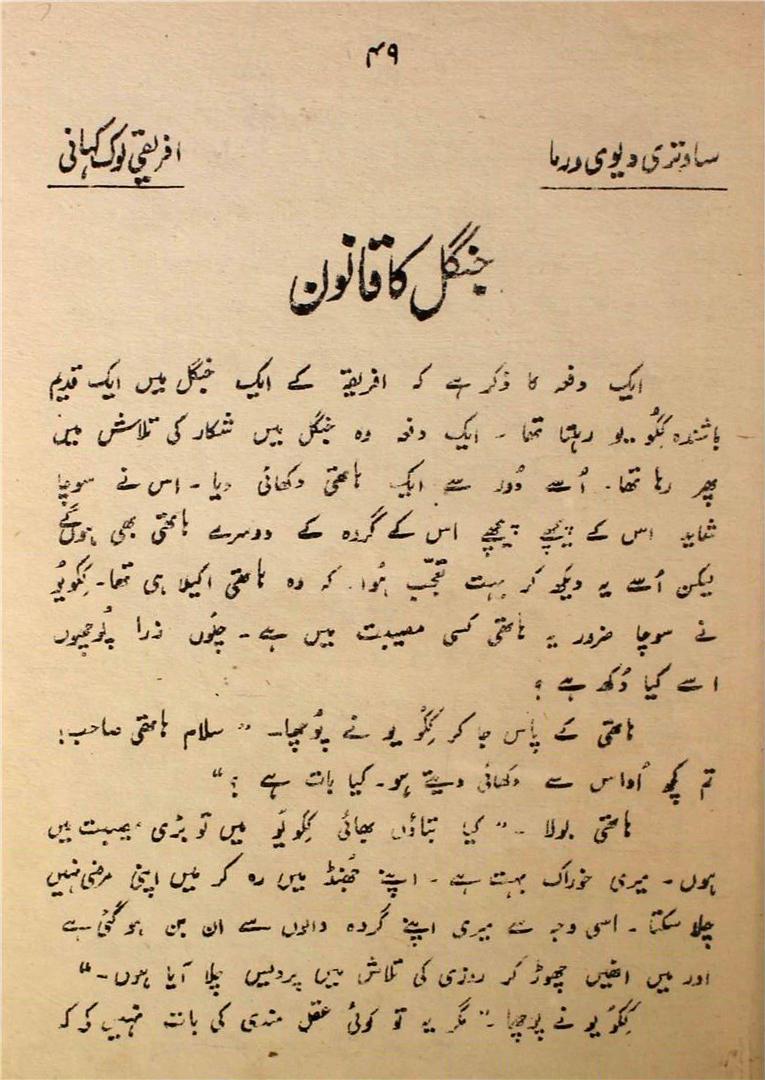 ۴۹
ساوتری دیوی ورما
افریقی لوک کہانی
جنگل کا قانون
ایک دفعہ کا ذکر ہے کہ افریقہ کے ایک جنگل میں ایک قدیم
باشندہ کِکُویو رہتا تھا ۔ ایک دفعہ وہ جنگل میں شکار کی تلاش میں
پھر رہا تھا۔ اُسے دُور سے ایک ہاتھی دکھائی دیا ۔ اس نے سوچا
شاید اس کے پیچھے پیچھے اس کے گروہ کے دوسرے ہاتھی بھی ہوں گے
لیکن اُسے یہ دیکھ کر بہت تعجّب ہُوا کہ وہ ہاتھی اکیلا ہی تھا۔ کِکویُو
نے سوچا ضرور یہ ہاتھی کسی مصیبت میں ہے ۔ چلُوں ذرا پُوچھوں
اسے کیا دُکھ ہے ؟
ہاتھی کے پاس جا کر کِکُو یو نے پُوچھا۔ " سلام ہاتھی صاحب!
تم کچھ اُداس سے دکھائی دیتے ہو۔ کیا بات ہے ؟"
ہاتھی بولا ۔" کیا بتاؤں بھائی کِکو یُو میں تو بڑی مصیبت میں
ہوں ۔ میری خوراک بہت ہے ۔ اپنے جُھنڈ میں رہ کر میں اپنی مرضی نہیں
چلا سکتا ۔ اسی وجہ سے میری اپنے گروہ والوں سے ان بن ہو گئی ہے
اور میں انھیں چھوڑ کر روزی کی تلاش میں پردیس چلا آیا ہوں ۔"
کِکُو یو نے پوچھا ۔" مگر یہ تو کوئی عقل مندی کی بات نہیں کہ